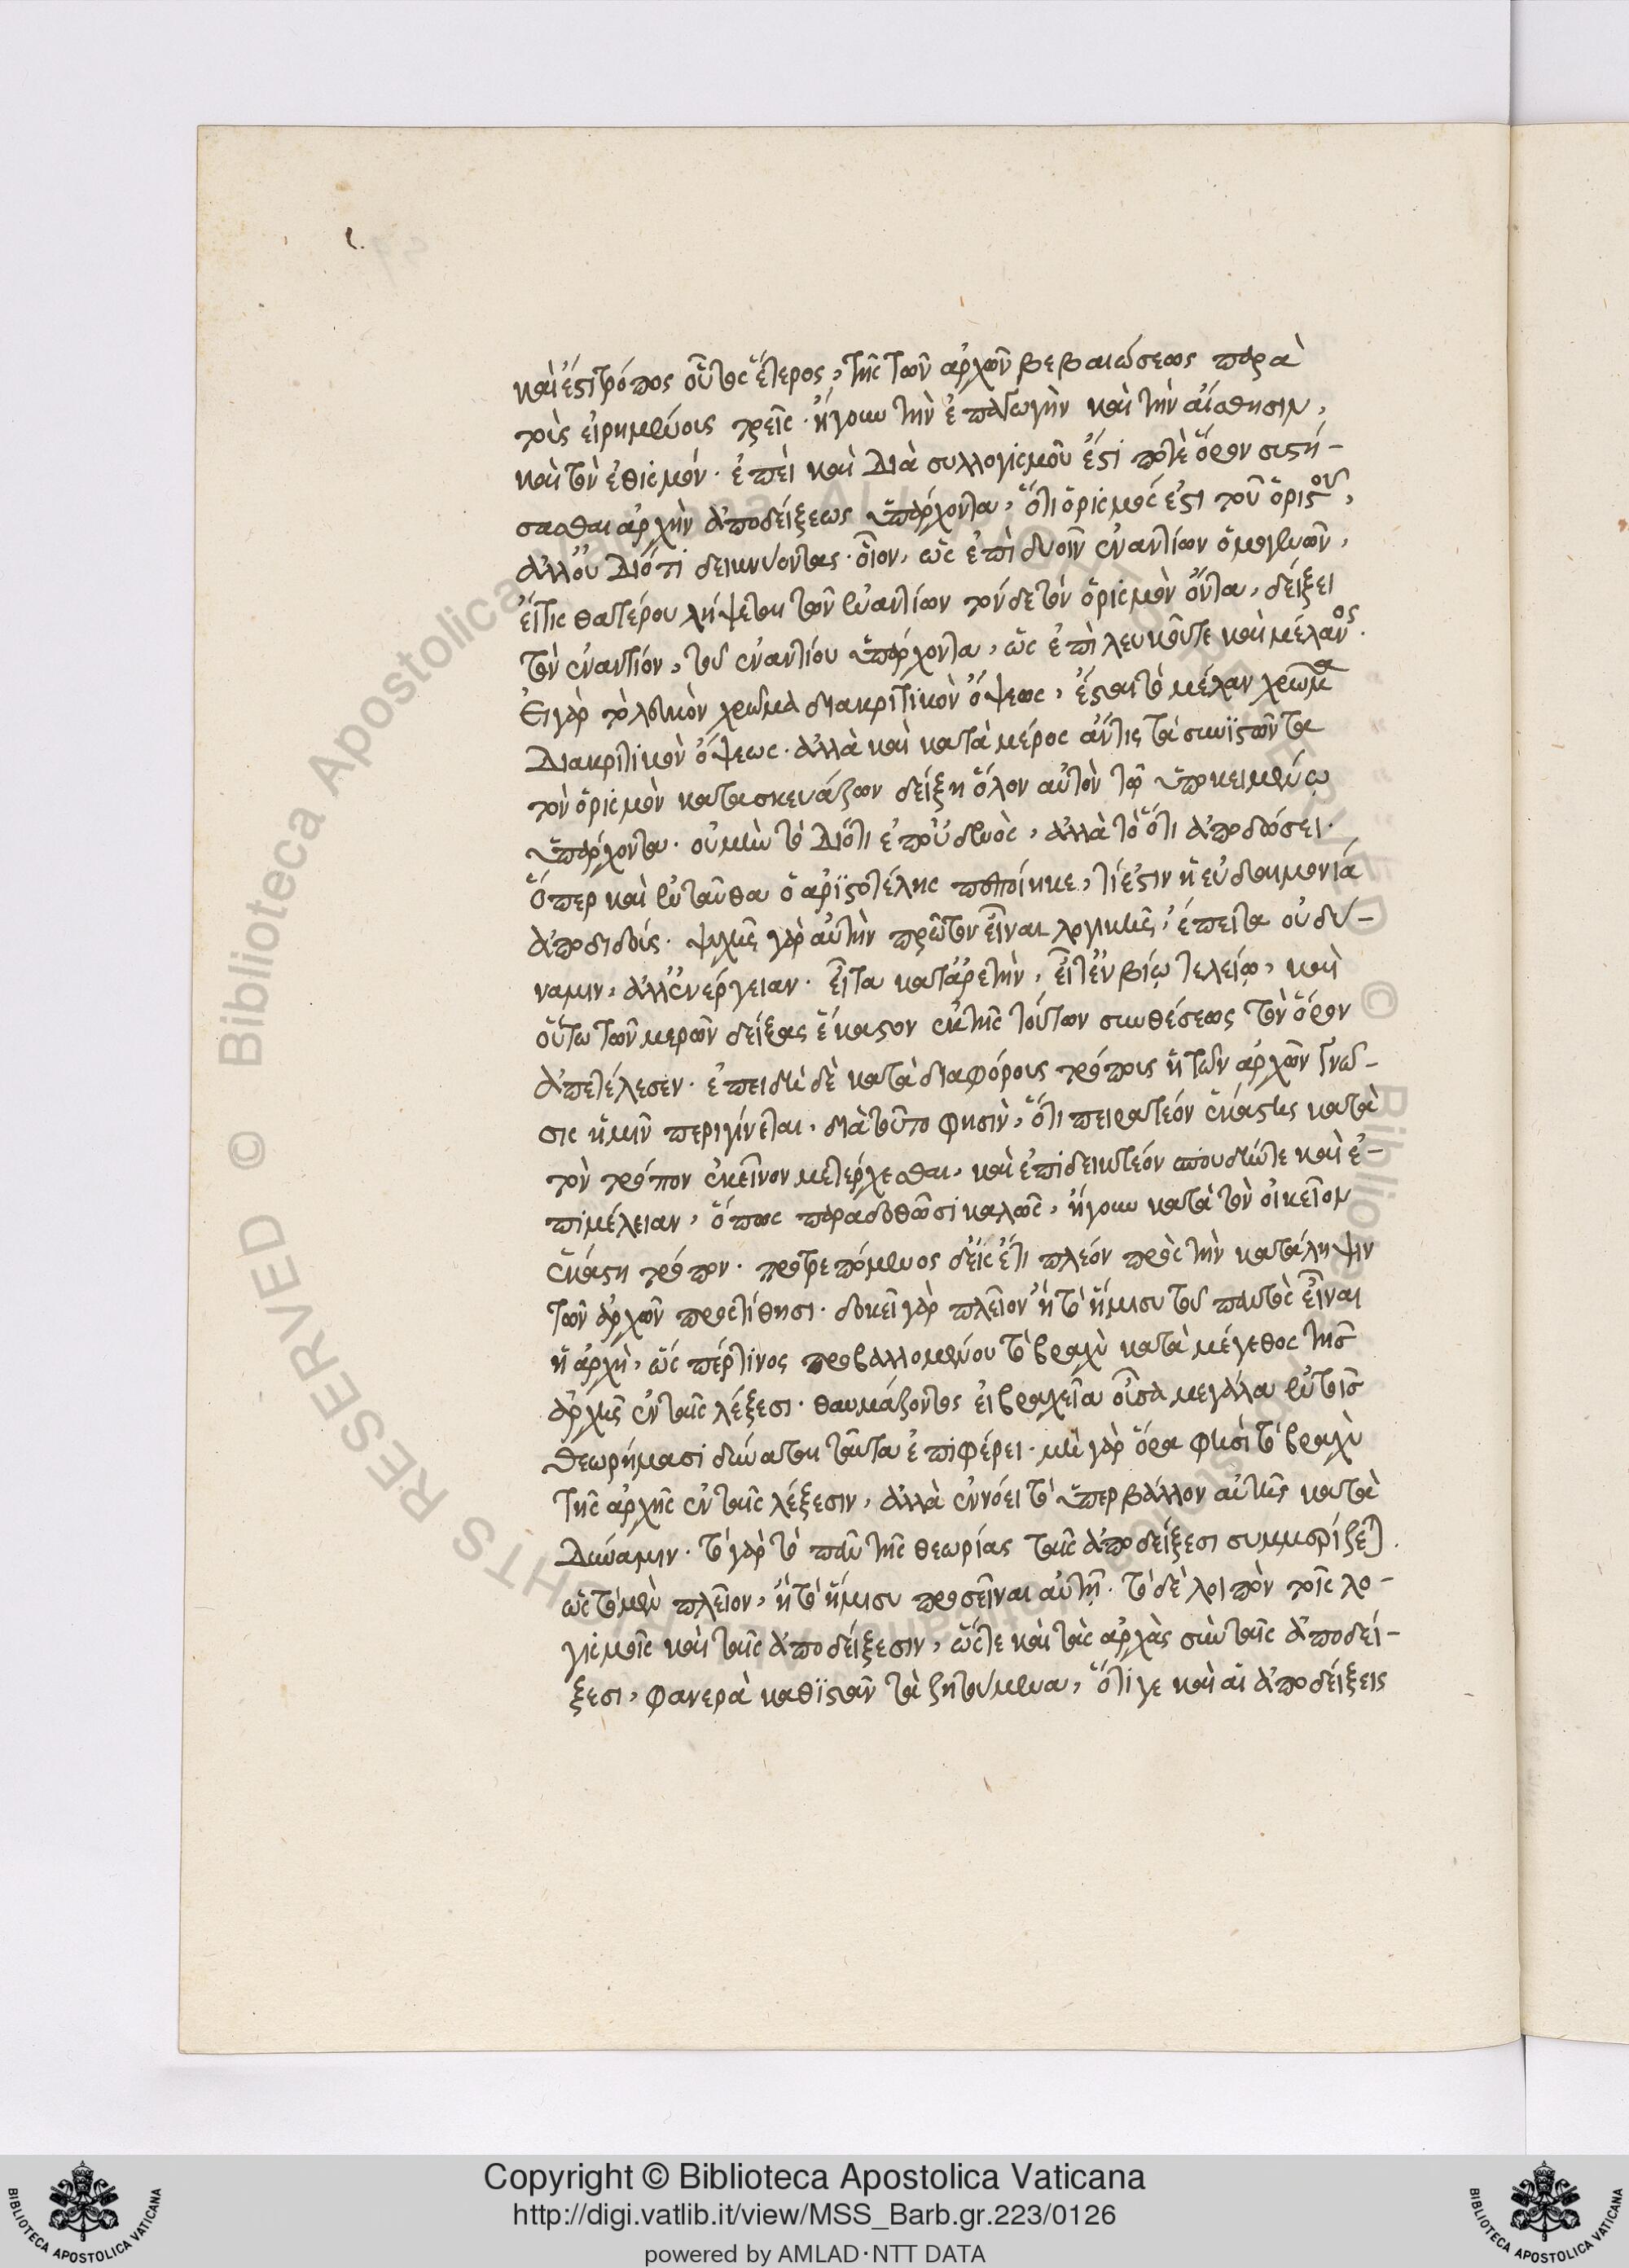 καὶ ἔστι τρόπος οὗτος ἕτερος, τῆς τῶν ἀρχῶν βεβαιώσεως παρὰ
τοὺς εἰρημένους τρεῖς. ἤγουν τὴν ἐπαγωγὴν καὶ τὴν αἴσθησιν,
καὶ τὸν ἐθισμόν. ἐπεὶ καὶ διὰ συλλογισμοῦ ἔστί ποτὲ ὅρον συστή-
σασθαι ἀρχὴν ἀποδείξεως ὑπάρχοντα, ὅτι ὁρισμός ἐστι τοῦ ὁριστοῦ,
ἀλλ' οὐ διότι δεικνύοντας. οἷον, ὡς ἐπὶ δυοῖν ἐναντίων ὁμογενῶν,
εἴ τις θατέρου λήψεται τῶν ἐναντίων τόνδε τὸν ὁρισμὸν ὄντα, δείξει
τὸν ἐναντίον, τοῦ ἐναντίου ὑπάρχοντα, ὡς ἐπὶ λευκοῦ τε καὶ μέλανος.
Εἰ γὰρ τὸ λευκὸν χρῶμα διακριτικὸν ὄψεως, ἔσται τὸ μέλαν χρῶμα
διακριτικὸν ὄψεως. ἀλλὰ καὶ κατὰ μέρος ἄν τις τὰ συνιστῶντα
τὸν ὁρισμὸν κατασκευάζων δείξῃ ὅλον αὐτὸν τῷ ὑποκειμένῳ
ὑπάρχοντα. οὐ μὴν τὸ διότι ἐπ' οὐδενὸς, ἀλλὰ τὸ ὅτι ἀποδώσει.
Ὅπερ καὶ ἐνταῦθα ὁ ἀριστοτέλης πεποίηκε, τί ἐστιν ἡ εὐδαιμονία
ἀποδιδοὺς. ψυχῆς γὰρ αὐτὴν πρῶτον εἶναι λογικῆς, ἔπειτα οὐ δύ-
ναμιν, ἀλλ' ἐνέργειαν. εἶτα κατ' ἀρετὴν, εἶτ' ἐν βίῳ τελείῳ, καὶ
οὕτω τῶν μερῶν δείξας ἕκαστον ἐκ τῆς τούτων συνθέσεως τὸν ὅρον
ἀπετέλεσεν. ἐπειδὴ δὲ κατὰ διαφόρους τρόπους ἡ τῶν ἀρχῶν γνῶ-
σις ἡμῖν περιγίνεται, διὰ τοῦτο φησὶν, ὅτι πειρατέον ἑκάστης κατὰ
τὸν τρόπον ἐκεῖνον μετέρχεσθαι, καὶ ἐπιδεικτέον σπουδήν τε καὶ ἐ-
πιμέλειαν, ὅπως παραδοθῶσι καλῶς, ἤγουν κατὰ τὸν οἰκεῖον
ἑκάστῃ τρόπον. προτρεπόμενος δ' εἰς ἔτι πλέον πρὸς τὴν κατάληψιν
τῶν ἀρχῶν προστίθησι. δοκεῖ γὰρ πλεῖον ἢ τὸ ἥμισυ τοῦ παντὸς εἶναι
ἡ ἀρχὴ, ὥς πέρ τινος προβαλλομένου τὸ βραχὺ κατὰ μέγεθος τῆς
ἀρχῆς ἐν ταῖς λέξεσι. θαυμάζοντος εἰ βραχεῖα οὖσα μεγάλα ἐν τοῖς
θεωρήμασι δύναται ταῦτα ἐπιφέρει. μὴ γὰρ ὅρα φησὶ τὸ βραχὺ
τῆς ἀρχῆς ἐν ταῖς λέξεσιν, ἀλλὰ ἐννόει τὸ ὑπερβάλλον αὐτῆς κατὰ
δύναμιν. τὸ γὰρ τὸ πᾶν τῆς θεωρίας ταῖς ἀποδείξεσι συμμερίζεται.
ὡς τὸ μὲν πλεῖον, ἢ τὸ ἥμισυ προσεῖναι αὐτῇ. τὸ δὲ λοιπὸν τοῖς λο-
γισμοῖς καὶ ταῖς ἀποδείξεσιν, ὥστε καὶ τὰς ἀρχὰς σὺν ταῖς ἀποδεί-
ξεσι, φανερὰ καθιστᾶν τὰ ζητούμενα, ὅτι γε καὶ αἱ ἀποδείξεις
Copyright © Biblioteca Apostolica Vaticana
http://digi.vatlib.it/view/MSS_Barb.gr.223/0126
powered by AMLAD·NTT DATA